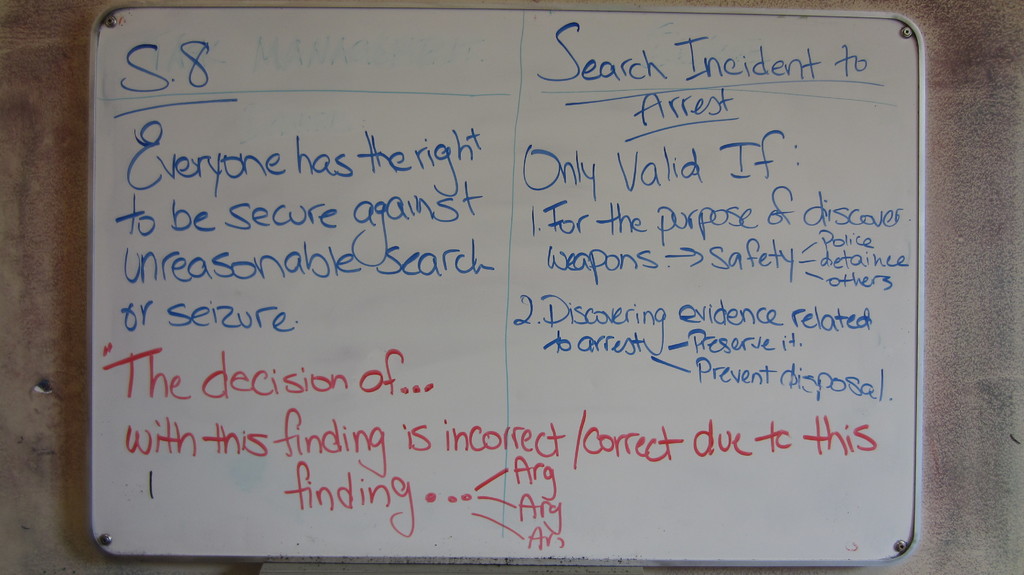 S.8
Everyone has the right
to be secure against
unreasonable search
or seizure.
Search Incident to
Arrest
Only Valid If:
1. For the purpose of discover.
weapons. → Safety - Police
- Detainee
- others
2. Discovering evidence related
to arrest - Preserve it.
- Prevent disposal.
"The decision of...
with this finding is incorrect/correct due to this
finding.... Arg
Arg